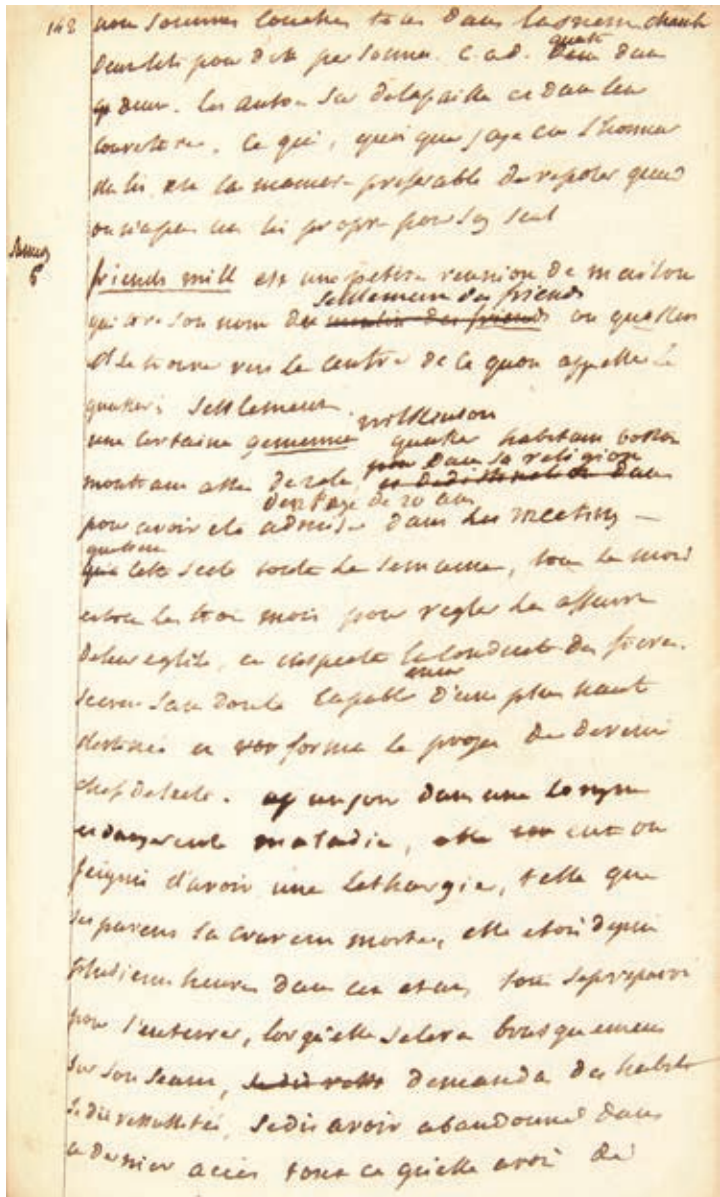 142
nous sommes couchés tous dans la mem chamb
deux lits pour dix personnes. C. a d. quatre dans
deux. les autres sur de la paille et dans leur
couvertures. Ce qui, quoi que j'aye eu l'honneur
du lit est la maniere preferable de reposer quand
on n'a pas un lit propre pour soy seul
friends mill est une petite reunion de maisons
settlement des friends
qui tire son nom du moulin des friends ou quakers
et se trouve vers le centre de ce quon appelle le
quakers settlement.
wilkinson
une certaine gemenne quaker habitant boston
dans sa religion
montrant assez de zele et de distinction dans
des l'age de 20 ans
pour avoir ete admise dans les meetings —
que cette secte toute la semaine, tous le mois
et tous les trois mois pour regler les affaires
de leur eglise, et inspecte la conduite des freres.
se crut sans doute capable d'une plus haut
destinée et forma le projet de devenir
chef de secte. un jour dans une longue
et dangereuse maladie, elle eut ou
feignit d'avoir une lethargie, telle que
ses parens la crurent morte, elle etoit depuis
plusieurs heures dans cet etat, tout se preparoit
pour l'enterrer, lorqu'elle se leva brusquement
sur son seant, demanda des habits
se dit ressuscitée, se dit avoir abandonné dans
ce dernier acces tout ce qu'elle avoit de